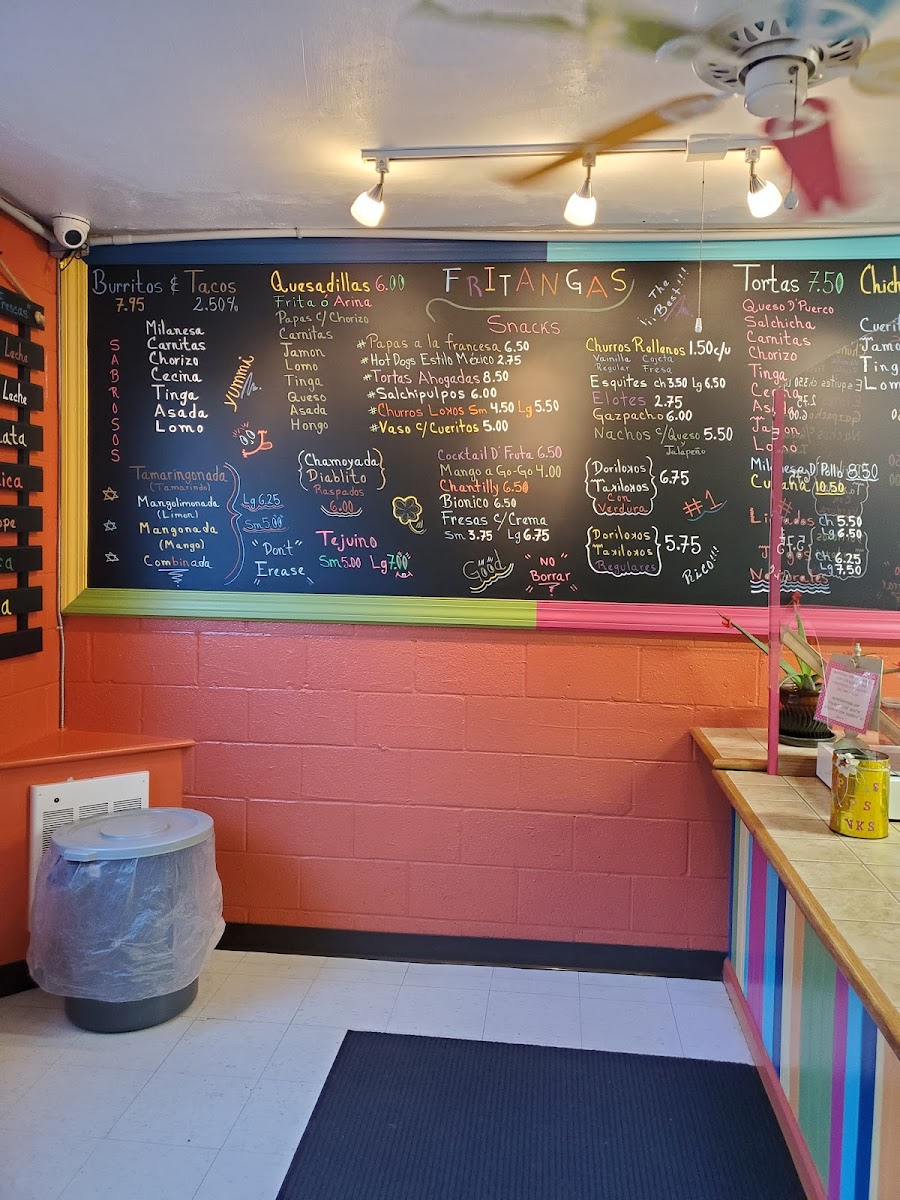 Frescas"
Lache
Lache
ata
ica
pe
a
a
Burritos & Tacos
7.95 2.50%
SABROSOS
Milanesa
Carnitas
Chorizo
Cecina
Tinga
Asada
Lomo
Yummi
Tamaringonada
(Tamarindo)
Mangolimonada
(Limon)
Mangonada
(Mango)
Combinada
Lg 6.25
Sm 5.00
"Don't"
Erease
Quesadillas 6.00
Frita ó Arina
Papas C/Chorizo
Carnitas
Jamon
Lomo
Tinga
Queso
Asada
Hongo
Chamoyada
Diablito
Raspados
6.00
Tejuino
Sm 5.00 Lg 7.00
FRITANGAS
Snacks
*Papas a la francesa 6.50
*Hot Dogs Estilo México 2.75
*Tortas Ahogadas 8.50
*Salchipulpos 6.00
*Churros Loxos Sm 4.50 Lg 5.50
*Vaso c/Cueritos 5.00
Cocktail D' Fruta 6.50
Mango a Go-Go 4.00
Chantilly 6.50
Bionico 6.50
Fresas c/Crema
Sm 3.75 Lg 6.75
Good
"NO"
Borrar
The
Best!!!
Churros Rellenos 1.50 c/u
Vainilla Cajeta
Regular Fresa
Esquites ch 3.50 Lg 6.50
Elotes 2.75
Gazpacho 6.00
Nachos c/Queso 5.50
y
Jalapeño
Doriloxos
Taxiloxos
Con
Verdura
6.75
#1
Doriloxos
Taxiloxos
Regulares
5.75
Rico!!!
Tortas 7.50
Queso D'Puerco
Salchicha
Carnitas
Chorizo
Tinga
Jamon
Lomo
Milanesa D' Pollo 8.50
Cubana 10.50
Licuados Ch 5.50
Lg 6.50
Jugos Ch 6.25
Naturales Lg 7.50